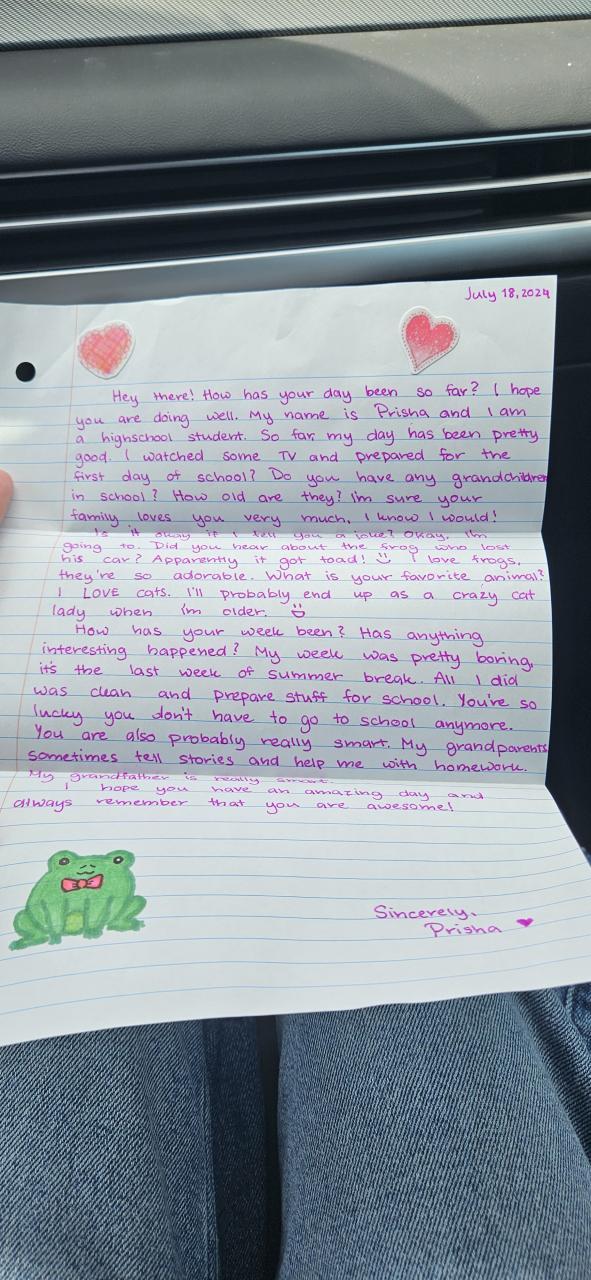 July 18, 2024
Hey there! How has your day been so far? I hope
you are doing well. My name is Prisha and I am
a highschool student. So far, my day has been pretty
good. I watched some TV and prepared for the
first day of school? Do you have any grandchildren
in school? How old are they? I'm sure your
family loves you very much, I know I would!
Is it okay if I tell you a joke? Okay, I'm
going to. Did you hear about the frog who lost
his car? Apparently it got toad! I love frogs,
they're so adorable. What is your favorite animal?
I LOVE cats. I'll probably end up as a crazy cat
lady when i'm older.
How has your week been? Has anything
interesting happened? My week was pretty boring,
it's the last week of summer break. All I did
was clean and prepare stuff for school. You're so
lucky you don't have to go to school anymore.
You are also probably really smart. My grandparents
sometimes tell stories and help me with homework.
My grandfather is really smart.
I hope you have an amazing day and
always remember that you are awesome!
Sincerely,
Prisha